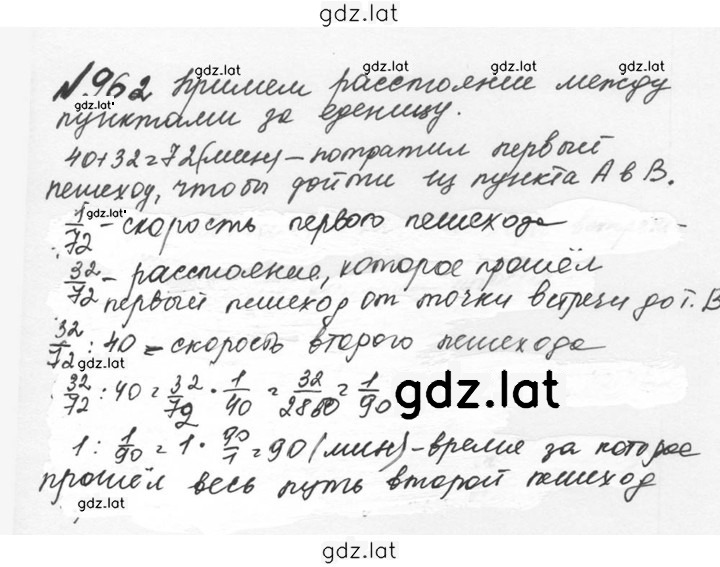 gdz.lat
gdz.lat
№962 Примем расстояние между
gdz.lat
пунктами за еденицу.
gdz.lat
40+32=72(мин)-потратил первый
пешеход, чтобы дойти из пункта А в В.
gdz.lat
1/72 - скорость первого пешехода
32/72 - расстояние, которое прошёл
первый пешеход от точки встречи до т. В
32/72 : 40 = скорость второго пешехода
gdz.lat
32/72 : 40 = 32/72 · 1/40 = 32/2880 = 1/90
gdz.lat
1 : 1/90 = 1 · 90/1 = 90 (мин)-время за которое
прошёл весь путь второй пешеход
gdz.lat
gdz.lat